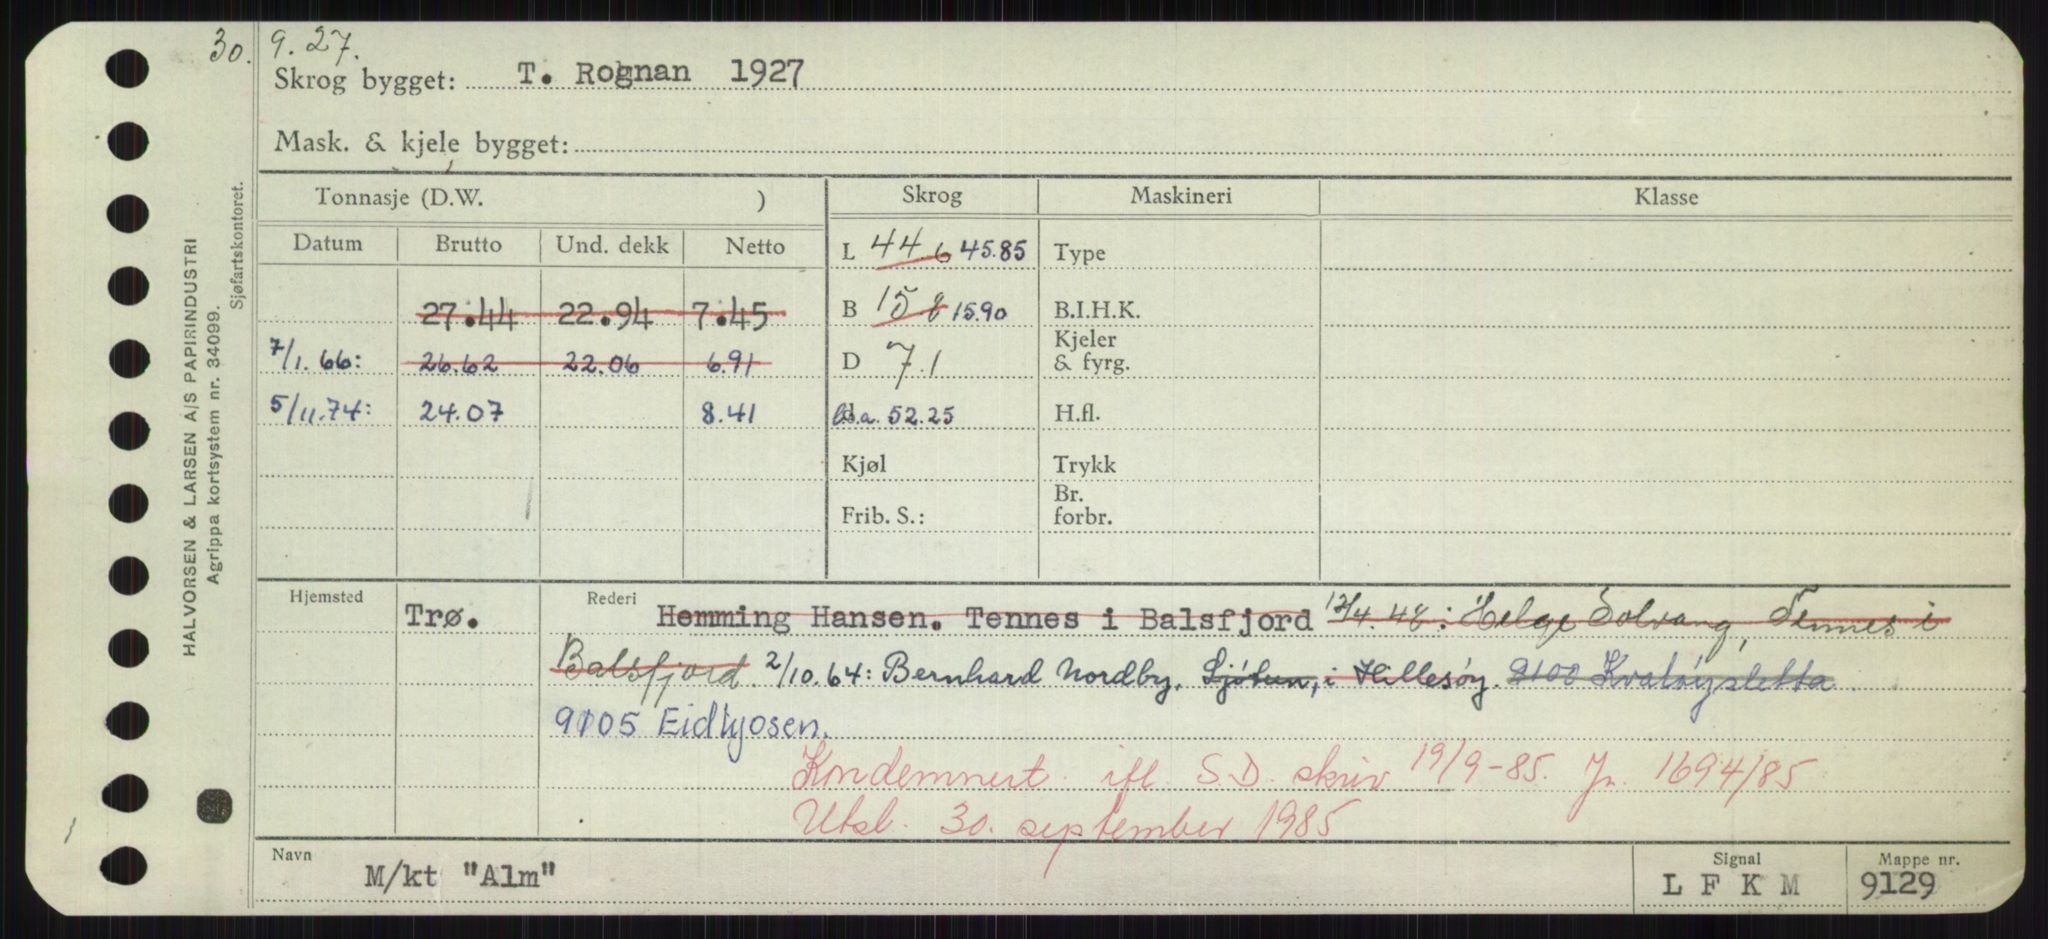 30. 9. 27.
Skrog bygget: T. Rognan 1927
Mask. & kjele bygget:
Tonnasje (D.W. ) Skrog Maskineri Klasse
Datum Brutto Und. dekk Netto L 44.6 45.85 Type
27.44 22.94 7.45 B 15.8 15.90 B.I.H.K.
7/1.66: 26.62 22.06 6.91 D 7.1 Kjeler & fyrg.
5/11.74: 24.07 8.41 l.o.a. 52.25 H.fl.
Kjøl Trykk
Frib. S.: Br. forbr.
Hjemsted Trø. Rederi Hemming Hansen. Tennes i Balsfjord 12/4.48: Helge Solvang, Tennes i
Balsfjord. 2/10.64: Bernhard Nordby, Sjøtun, i Hillesøy. 9100 Kvaløysletta
9105 Eidkjosen.
Kondemnert ifl. S.D. skriv 19/9-85. Jr. 1694/85
Utsl. 30. september 1985
Navn M/kt "Alm" Signal L F K M Mappe nr. 9129
HALVORSEN & LARSEN A/S PAPIRINDUSTRI
Agrippa kortsystem nr. 34099.
Sjøfartskontoret.